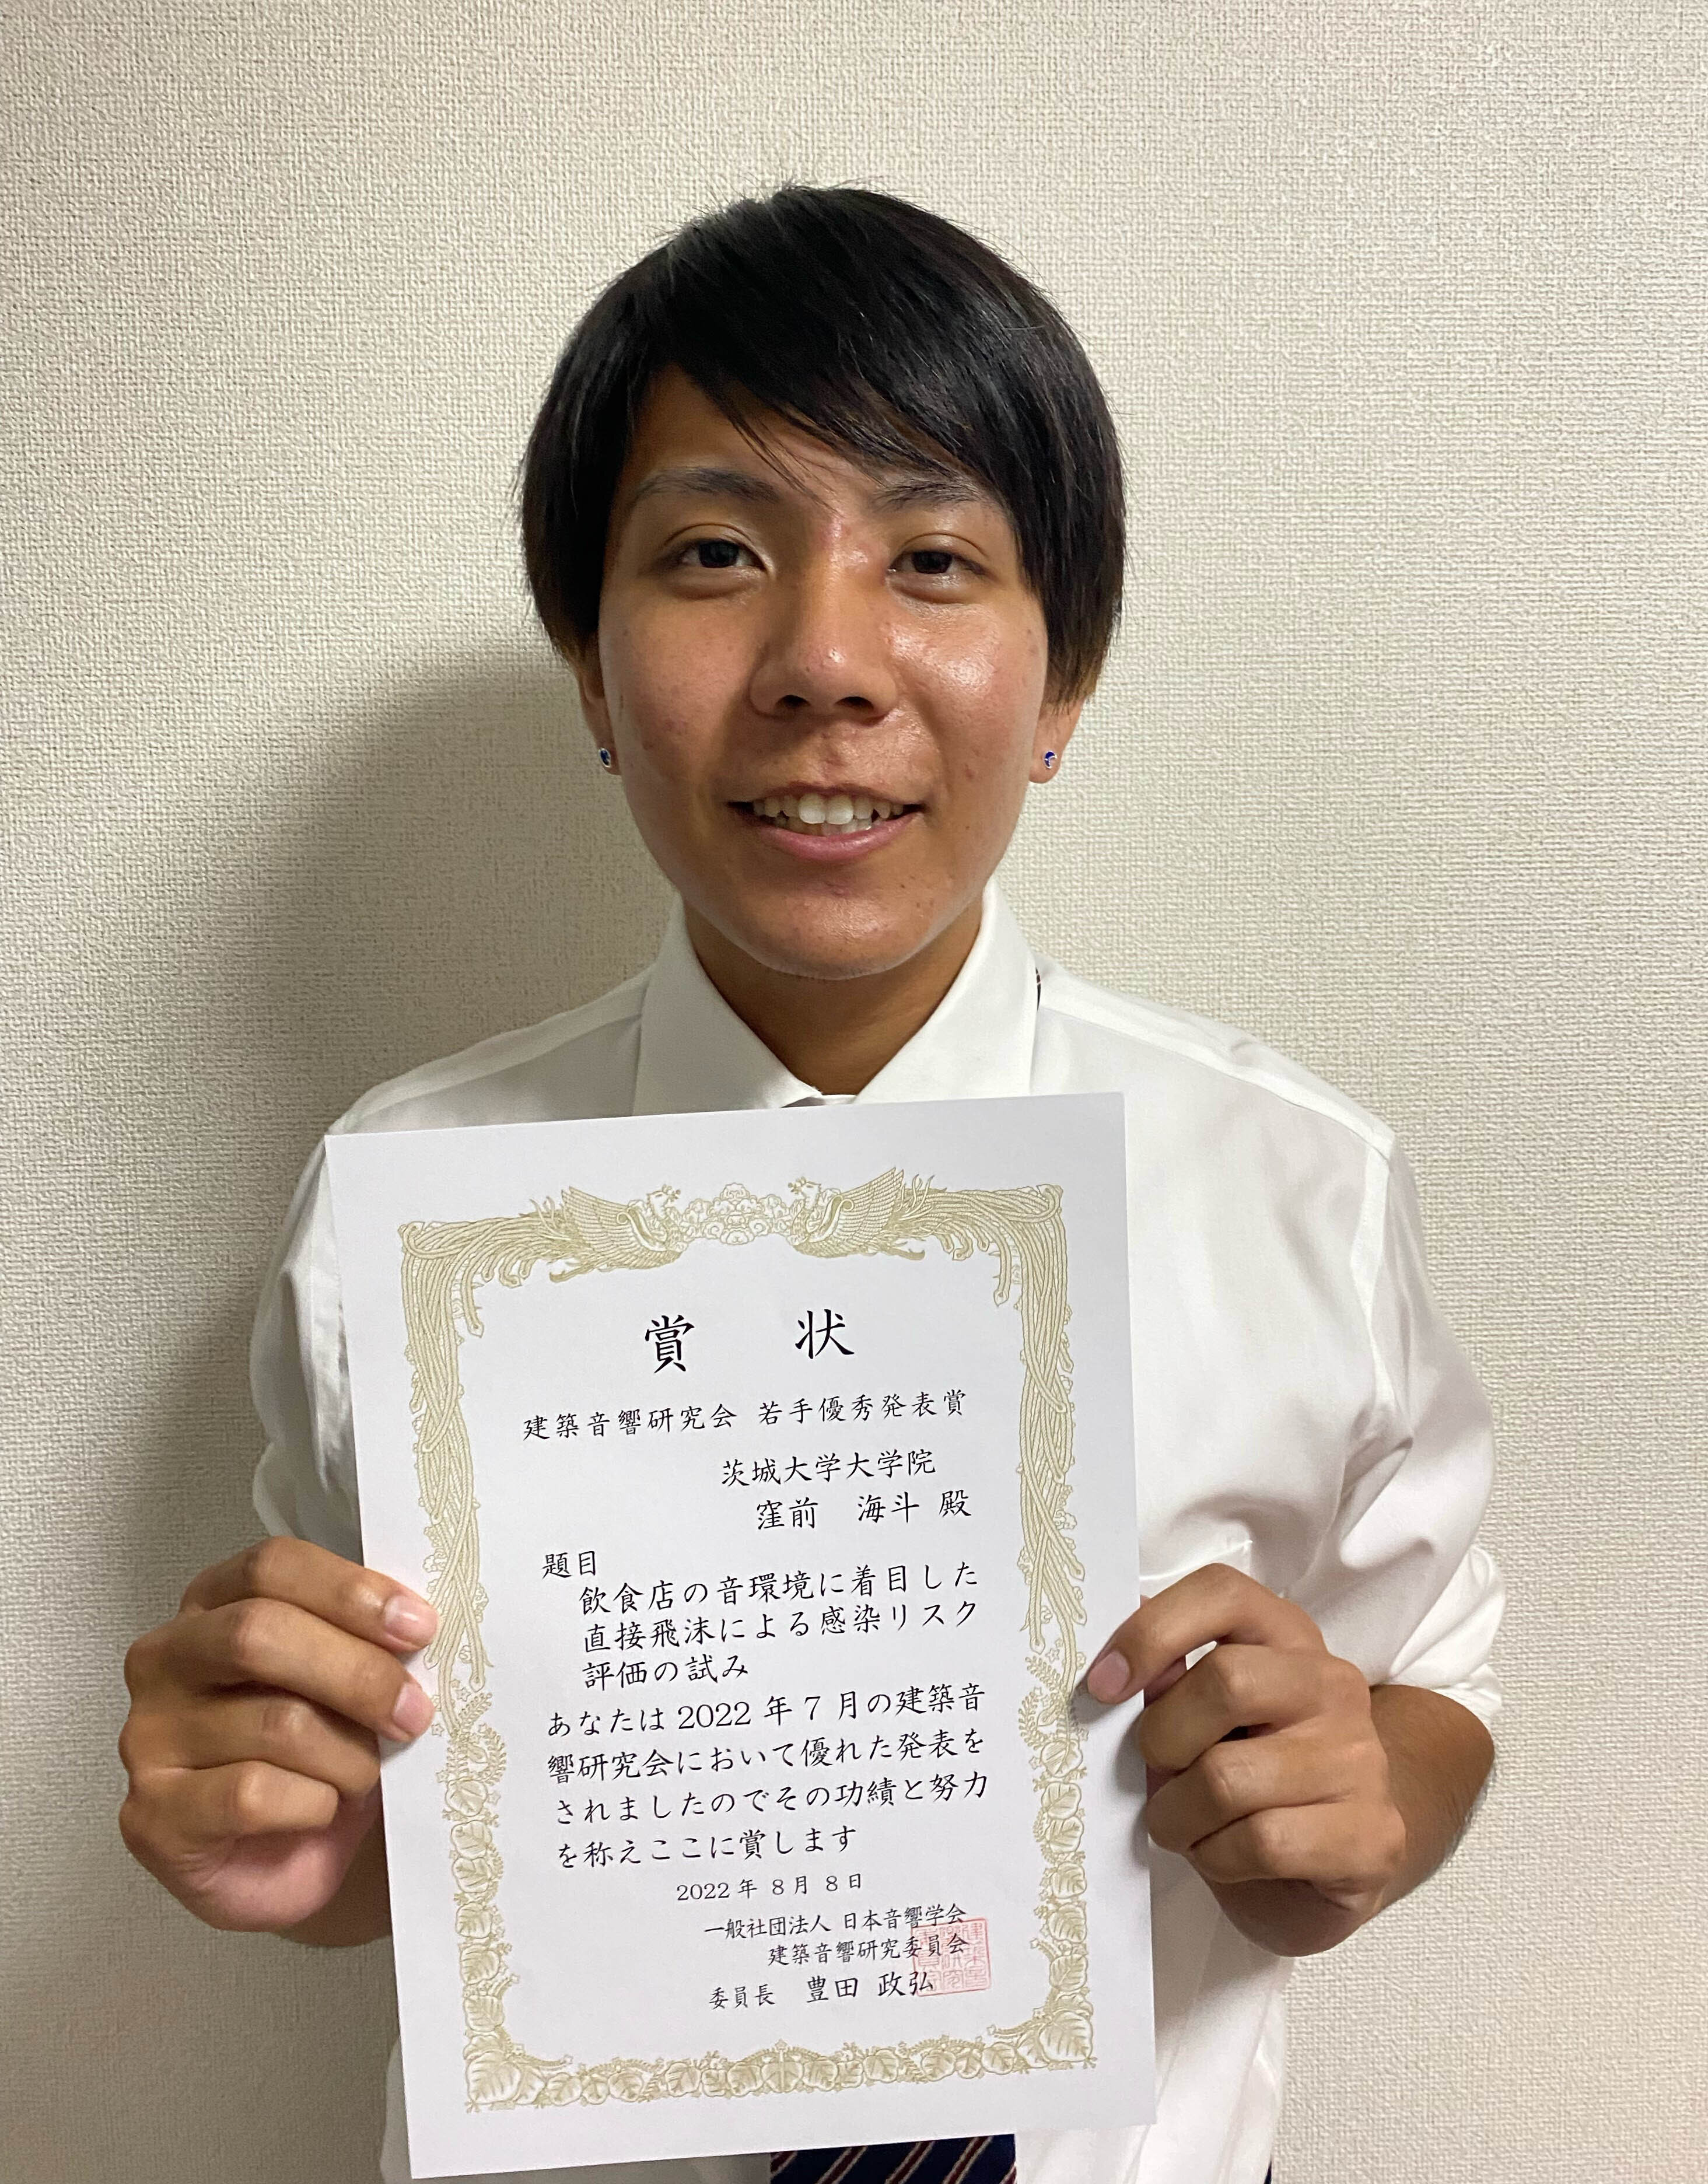 賞 状
建築音響研究会 若手優秀発表賞
茨城大学大学院
窪前 海斗 殿
題目
飲食店の音環境に着目した
直接飛沫による感染リスク
評価の試み
あなたは 2022 年 7 月の建築音
響研究会において優れた発表を
されましたのでその功績と努力
を称えここに賞します
2022 年 8 月 8 日
一般社団法人 日本音響学会
建築音響研究委員会
委員長 豊田 政弘